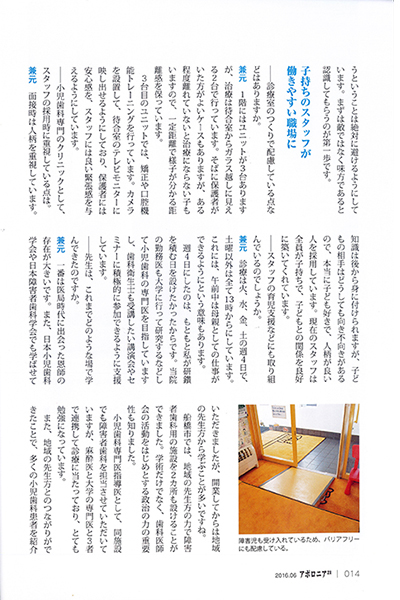 うということは絶対に避けるようにして
います。まずは敵ではなく味方であると
認識してもらうのが第一歩です。
子持ちのスタッフが
働きやすい職場に
――診療室のつくりで配慮している点な
どはありますか。
兼元　1階にはユニットが3台あります
が、治療は待合室からガラス越しに見え
る2台で行っています。そばに保護者が
いた方がよいケースもありますが、ある
程度離れていないと治療にならない子も
いますので、一定距離で様子が分かる距
離感を保っています。
3台目のユニットでは、矯正や口腔機
能トレーニングを行っています。カメラ
を設置して、待合室のテレビモニターに
映し出せるようにしており、保護者には
安心感を、スタッフには良い緊張感を与
えるようにしています。
――小児歯科専門のクリニックとして、
スタッフの採用時に重視している点は。
兼元　面接時は人柄を重視しています。
知識は後から身に付けられますが、子ど
もの相手はどうしても向き不向きがある
ので、本当に子ども好きで、人柄が良い
人を採用しています。現在のスタッフは
全員が子持ちで、子どもとの関係を良好
に築いてくれています。
――スタッフの育児支援などにも取り組
んでいるのでしょうか。
兼元　診療は火、水、金、土の週4日で、
土曜以外は全て13時からにしています。
これには、午前中は母親としての仕事が
できるようにという意味もあります。
週4日にしたのは、もともと私が研鑽
を積む日を設けたかったからです。当院
の勤務医も大学に行って研究するなどし
て小児歯科の専門医を目指しています
し、歯科衛生士も受講したい講演会やセ
ミナーに積極的に参加できるように支援
しています。
――先生は、これまでどのような場で学
んできたのですか。
兼元　一番は医局時代に出会った恩師の
存在が大きいです。また、日本小児歯科
学会や日本障害者歯科学会でも学ばせて
いただきましたが、開業してからは地域
の先生方から学ぶことが多いですね。
船橋市では、地域の先生方の力で障害
者歯科用の施設を2カ所も設けることが
できました。学術だけでなく、歯科医師
会の活動をはじめとする政治の力の重要
性も知りました。
小児歯科専門医指導医として、同施設
でも障害者歯科を担当させていただいて
いますが、麻酔医と大学の専門医と3者
で連携して診療に当たっており、とても
勉強になっています。
また、地域の先生方とのつながりがで
きたことで、多くの小児歯科患者を紹介
障害児も受け入れているため、バリアフリー
にも配慮している。
2016.06 アポロニア21 014